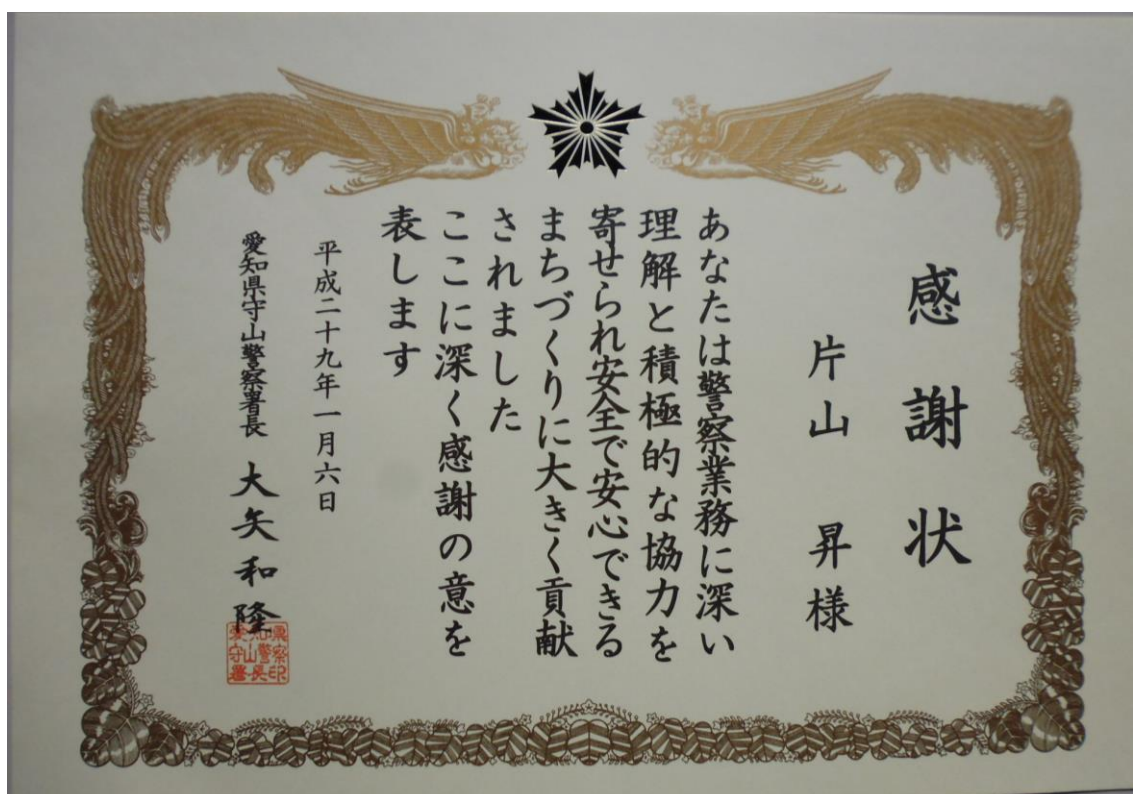 感謝状
片山 昇様
あなたは警察業務に深い
理解と積極的な協力を
寄せられ安全で安心できる
まちづくりに大きく貢献
されました
ここに深く感謝の意を
表します
平成二十九年一月六日
愛知県守山警察署長 大矢和隆